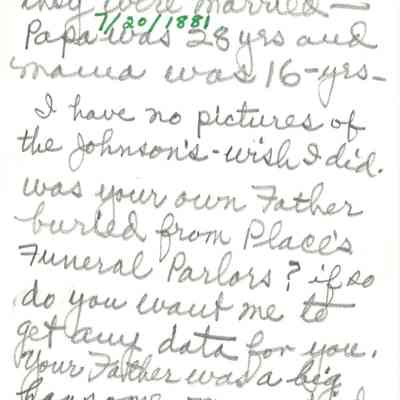 they were married —
7/20/1881
Papa was 28 yrs and
mama was 16-yrs-
I have no pictures of
the Johnson's - wish I did.
was your own Father
buried from Place's
Funeral Parlors? if so
do you want me to
get any data for you.
Your Father was a big